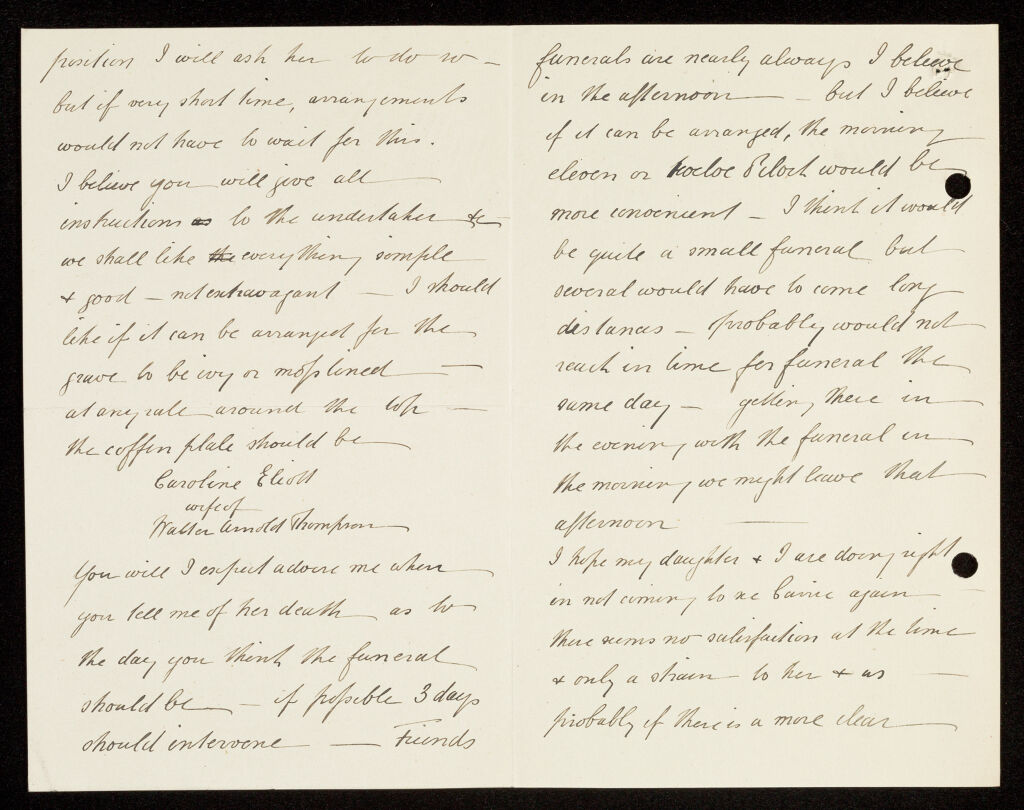 position I will ask her to do so –
but if very short time, arrangements
would not have to wait for this.
I believe you will give all
instructions as to the undertaker &c
we shall like the everything simple
& good – not extravagant – I should
like if it can be arranged for the
grave to be ivy or moss lined –
at any rate around the top –
the coffin plate should be
Caroline Eliott
wife of
Walter Arnold Thompson
You will I expect advise me when
you tell me of her death as to
the day you think the funeral
should be – if possible 3 days
should intervene – Friends
funerals are nearly always I believe
in the afternoon – but I believe
if it can be arranged, the morning
eleven or twelve O'clock would be
more convenient – I think it would
be quite a small funeral but
several would have to come long
distances – probably would not
reach in time for funeral the
same day – getting there in
the evening with the funeral in
the morning we might leave that
afternoon –
I hope my daughter & I are doing right
in not coming to see Carrie again
there seems no satisfaction at the time
& only a strain to her & us –
probably if there is a more clear